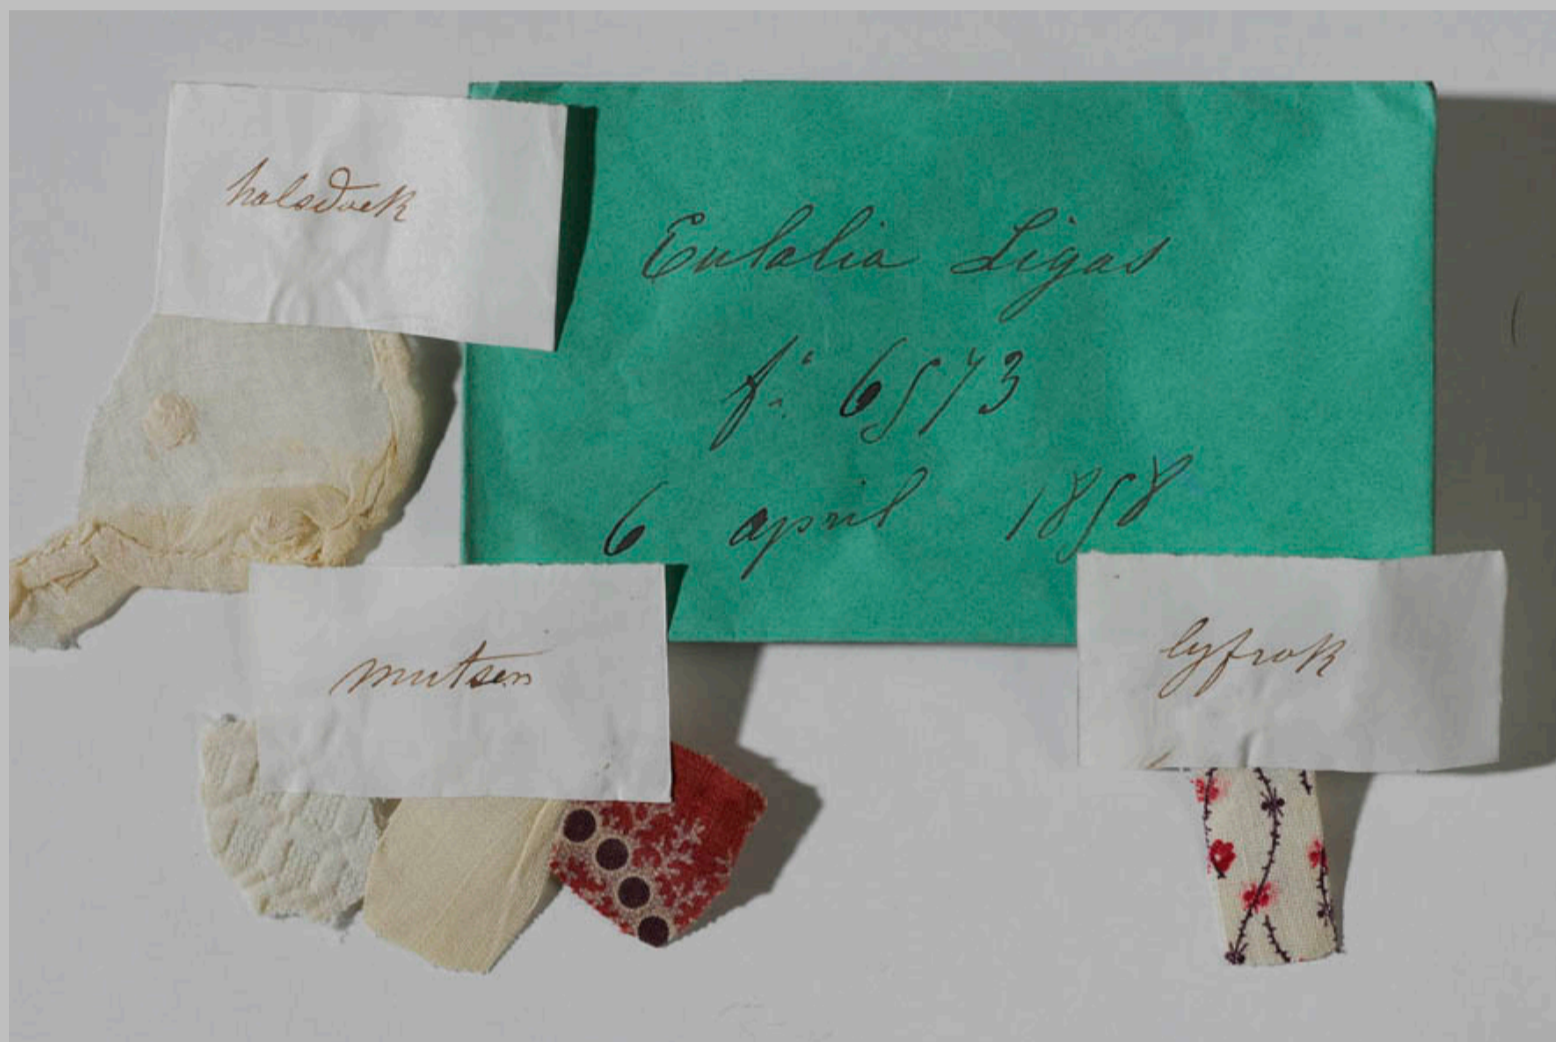 halsdoek
Eulalia Ligas
f: 6573
6 april 1858
mutsen
lyfrok